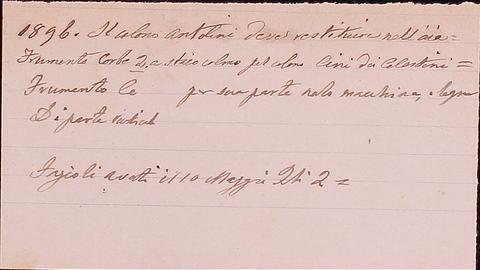 1896. Il colono Antolini deve restituire nell'aia =
Frumento Corbe 2, a staio colmo pel colono Cini dei Celestini =
Frumento Ce per sua parte nella macchina, e legna
Di parte
Fagioli avuti il 10 Maggio 2 =